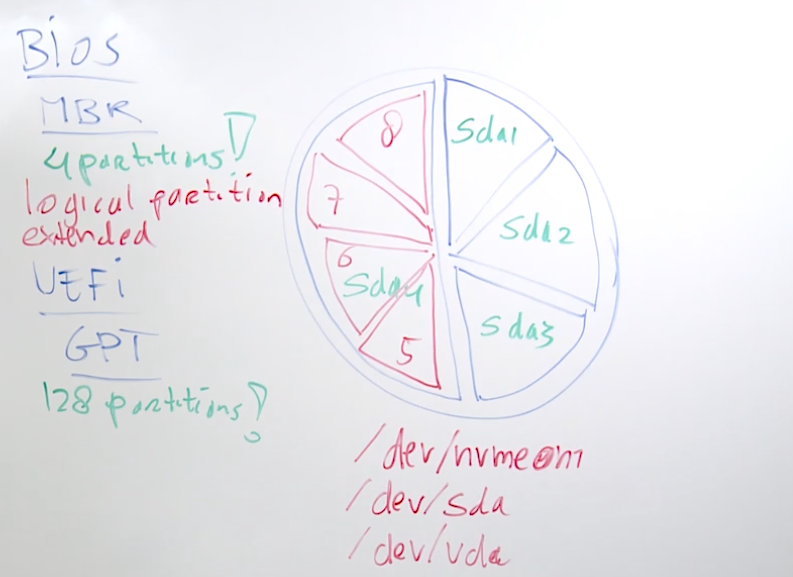 BiOS
MBR
4 partitions!
logical partition
extended
UEFi
GPT
128 partitions!
8
sda1
7
sda2
6
sda4
sda3
5
/dev/nvme0n1
/dev/sda
/dev/vda